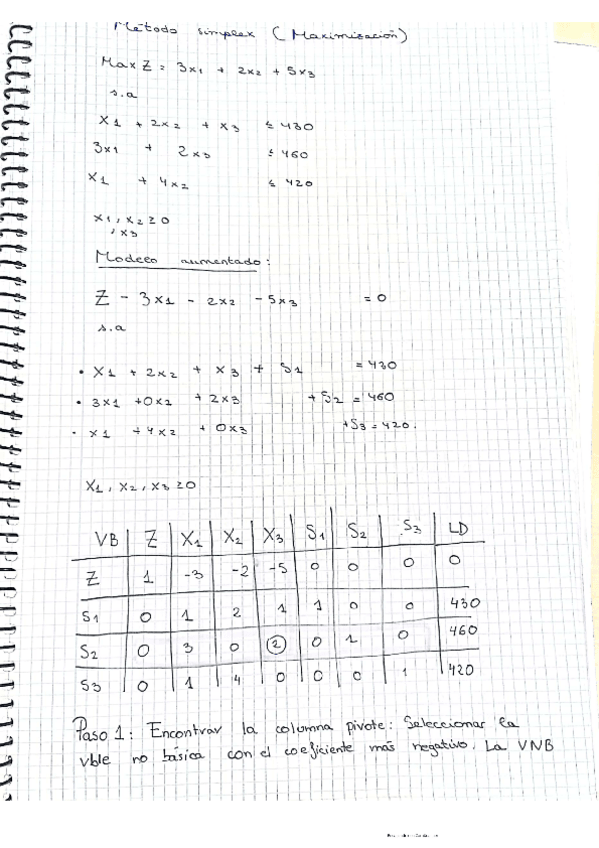 Método simplex (Maximización)
Max Z = 3x1 + 2x2 + 5x3
s.a
x1 + 2x2 + x3 ≤ 430
3x1 + 2x3 ≤ 460
x1 + 4x2 ≤ 420
x1, x2 ≥ 0
, x3
Modelo aumentado:
Z - 3x1 - 2x2 - 5x3 = 0
s.a
• x1 + 2x2 + x3 + S1 = 430
• 3x1 + 0x2 + 2x3 + S2 = 460
• x1 + 4x2 + 0x3 + S3 = 420.
x1, x2, x3 ≥ 0
VB Z X1 X2 X3 S1 S2 S3 LD
Z 1 -3 -2 -5 0 0 0 0
S1 0 1 2 1 1 0 0 430
S2 0 3 0 2 0 1 0 460
S3 0 1 4 0 0 0 1 420
Paso 1: Encontrar la columna pivote: Seleccionar la
vble no básica con el coeficiente más negativo. La VNB